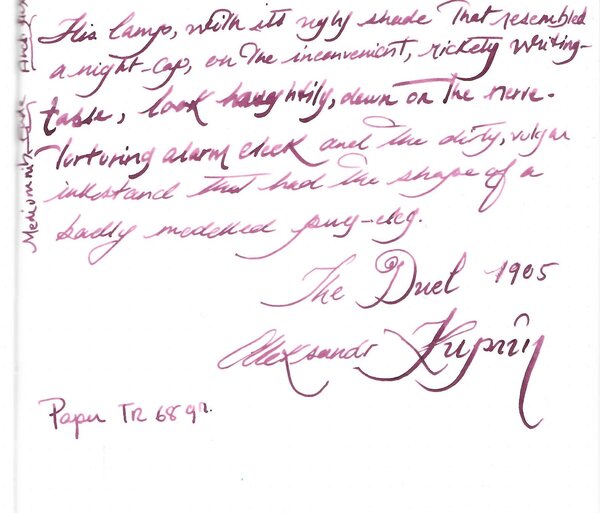 His lamp, with its ugly shade that resembled
a night-cap, on the inconvenient, rickety writing-
table, look haughtily, down on the nerve-
torturing alarm clock and the dirty, vulgar
inkstand that had the shape of a
badly modelled pug-dog.
The Duel 1905
Aleksandr Kuprin
Paper TR 68 gr.